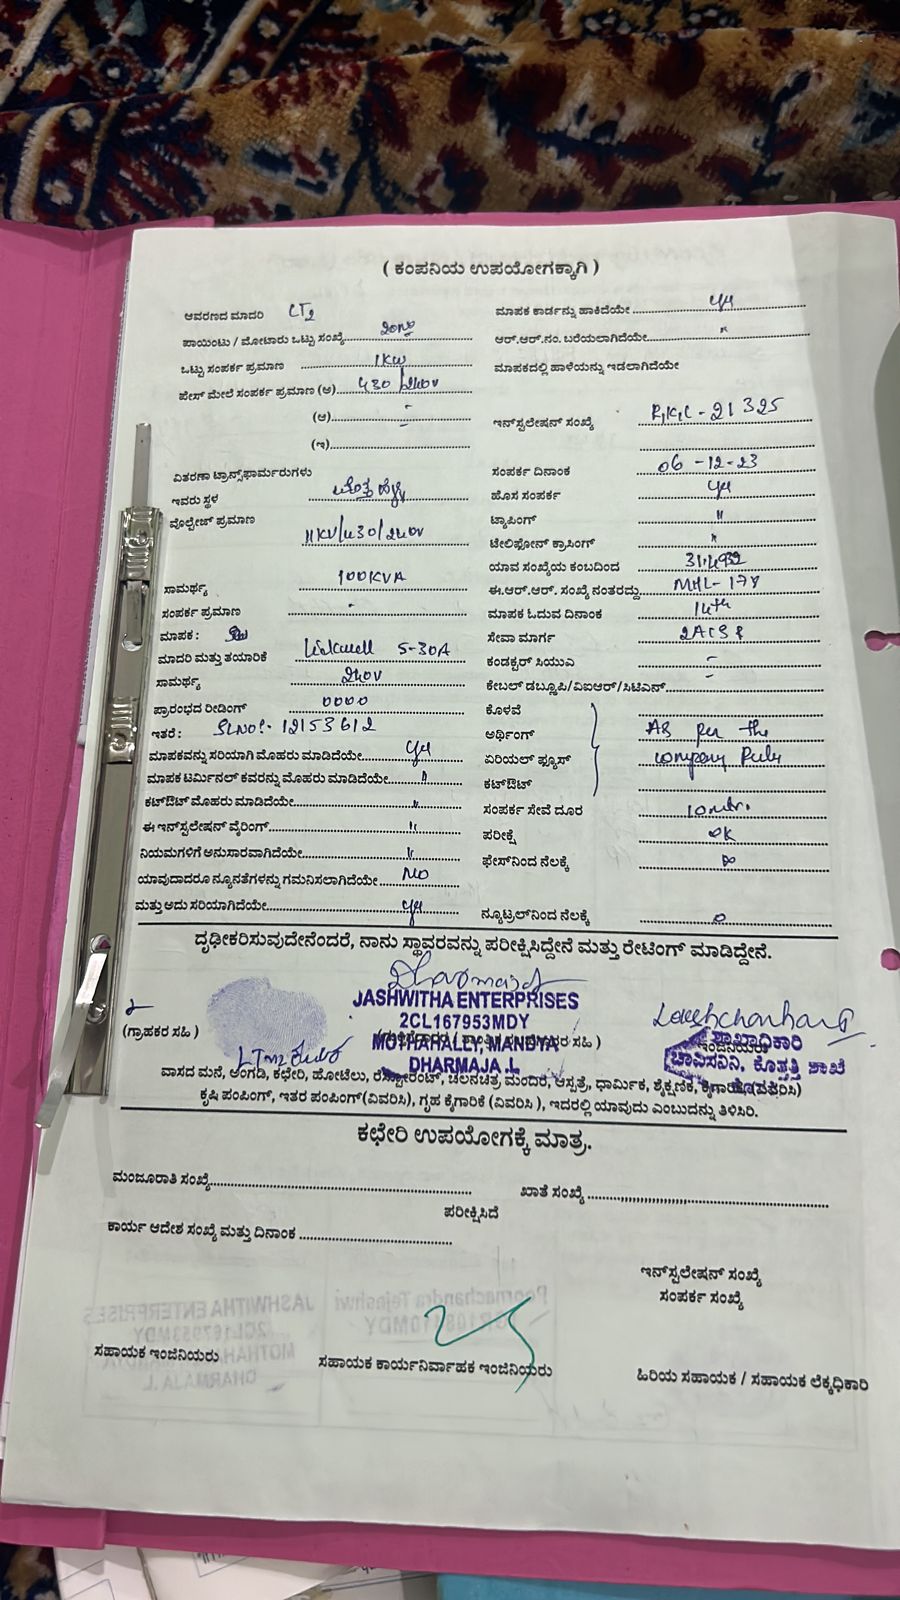 ( ಕಂಪನಿಯ ಉಪಯೋಗಕ್ಕಾಗಿ )
ಆವರಣದ ಮಾದರಿ LT2
ಪಾಯಿಂಟು / ಮೋಟಾರು ಒಟ್ಟು ಸಂಖ್ಯೆ
ಒಟ್ಟು ಸಂಪರ್ಕ ಪ್ರಮಾಣ 1KW
ಪೇಸ್ ಮೇಲೆ ಸಂಪರ್ಕ ಪ್ರಮಾಣ (ಅ) 430/240V
(ಆ) -
(ಇ) -
ವಿತರಣಾ ಟ್ರಾನ್ಸ್‌ಫಾರ್ಮರುಗಳು
ಇವರು ಸ್ಥಳ
ವೊಲ್ಟೇಜ್ ಪ್ರಮಾಣ 11KV/430/240V
ಸಾಮರ್ಥ್ಯ 100KVA
ಸಂಪರ್ಕ ಪ್ರಮಾಣ -
ಮಾಪಕ :
ಮಾದರಿ ಮತ್ತು ತಯಾರಿಕೆ 5-30A
ಸಾಮರ್ಥ್ಯ 240V
ಪ್ರಾರಂಭದ ರೀಡಿಂಗ್ 0000
ಇತರೆ : SLNO:- 12153612
ಮಾಪಕವನ್ನು ಸರಿಯಾಗಿ ಮೊಹರು ಮಾಡಿದೆಯೇ yes
ಮಾಪಕ ಟರ್ಮಿನಲ್ ಕವರನ್ನು ಮೊಹರು ಮಾಡಿದೆಯೇ "
ಕಟ್‌ಔಟ್ ಮೊಹರು ಮಾಡಿದೆಯೇ "
ಈ ಇನ್‌ಸ್ಟಲೇಷನ್ ವೈರಿಂಗ್ "
ನಿಯಮಗಳಿಗೆ ಅನುಸಾರವಾಗಿದೆಯೇ "
ಯಾವುದಾದರೂ ನ್ಯೂನತೆಗಳನ್ನು ಗಮನಿಸಲಾಗಿದೆಯೇ NO
ಮತ್ತು ಅದು ಸರಿಯಾಗಿದೆಯೇ yes
ಮಾಪಕ ಕಾರ್ಡನ್ನು ಹಾಕಿದೆಯೇ yes
ಆರ್.ಆರ್.ನಂ. ಬರೆಯಲಾಗಿದೆಯೇ "
ಮಾಪಕದಲ್ಲಿ ಹಾಳೆಯನ್ನು ಇಡಲಾಗಿದೆಯೇ
ಇನ್‌ಸ್ಟಲೇಷನ್ ಸಂಖ್ಯೆ 21325
ಸಂಪರ್ಕ ದಿನಾಂಕ 06-12-23
ಹೊಸ ಸಂಪರ್ಕ yes
ಟ್ಯಾಪಿಂಗ್ "
ಟೆಲಿಫೋನ್ ಕ್ರಾಸಿಂಗ್ "
ಯಾವ ಸಂಖ್ಯೆಯ ಕಂಬದಿಂದ
ಈ.ಆರ್.ಆರ್. ಸಂಖ್ಯೆ ನಂತರದ್ದು MHL-178
ಮಾಪಕ ಓದುವ ದಿನಾಂಕ 14th
ಸೇವಾ ಮಾರ್ಗ 2ACSR
ಕಂಡಕ್ಟರ್ ಸಿಯುಎ -
ಕೇಬಲ್ ಡಬ್ಲ್ಯೂಪಿ/ವಿಐಆರ್/ಸಿಟಿಎನ್ -
ಕೊಳವೆ
ಅರ್ಥಿಂಗ್ As per the
ಏರಿಯಲ್ ಫ್ಯೂಸ್ company Rules
ಕಟ್‌ಔಟ್
ಸಂಪರ್ಕ ಸೇವೆ ದೂರ 10mtr.
ಪರೀಕ್ಷೆ OK
ಫೇಸ್‌ನಿಂದ ನೆಲಕ್ಕೆ ∞
ನ್ಯೂಟ್ರಲ್‌ನಿಂದ ನೆಲಕ್ಕೆ 0
ದೃಢೀಕರಿಸುವುದೇನೆಂದರೆ, ನಾನು ಸ್ಥಾವರವನ್ನು ಪರೀಕ್ಷಿಸಿದ್ದೇನೆ ಮತ್ತು ರೇಟಿಂಗ್ ಮಾಡಿದ್ದೇನೆ.
JASHWITHA ENTERPRISES
2CL167953MDY
MOTHAHALLY, MANDYA
DHARMAJA .L
(ಗ್ರಾಹಕರ ಸಹಿ )
ಶಾಖಾಧಿಕಾರಿ
ಚಾವಿಸನಿನಿ, ಕೊತ್ತತ್ತಿ ಶಾಖೆ
ವಾಸದ ಮನೆ, ಅಂಗಡಿ, ಕಛೇರಿ, ಹೋಟೆಲು, ರೆಸ್ಟೋರೆಂಟ್, ಚಲನಚಿತ್ರ ಮಂದಿರ, ಆಸ್ಪತ್ರೆ, ಧಾರ್ಮಿಕ, ಶೈಕ್ಷಣಿಕ, ಕೈಗಾರಿಕೆ
ಕೃಷಿ ಪಂಪಿಂಗ್, ಇತರ ಪಂಪಿಂಗ್(ವಿವರಿಸಿ), ಗೃಹ ಕೈಗಾರಿಕೆ (ವಿವರಿಸಿ ), ಇದರಲ್ಲಿ ಯಾವುದು ಎಂಬುದನ್ನು ತಿಳಿಸಿರಿ.
ಕಛೇರಿ ಉಪಯೋಗಕ್ಕೆ ಮಾತ್ರ.
ಮಂಜೂರಾತಿ ಸಂಖ್ಯೆ
ಖಾತೆ ಸಂಖ್ಯೆ
ಪರೀಕ್ಷಿಸಿದೆ
ಕಾರ್ಯ ಆದೇಶ ಸಂಖ್ಯೆ ಮತ್ತು ದಿನಾಂಕ
ಇನ್‌ಸ್ಟಲೇಷನ್ ಸಂಖ್ಯೆ
ಸಂಪರ್ಕ ಸಂಖ್ಯೆ
ಸಹಾಯಕ ಇಂಜಿನಿಯರು
ಸಹಾಯಕ ಕಾರ್ಯನಿರ್ವಾಹಕ ಇಂಜಿನಿಯರು
ಹಿರಿಯ ಸಹಾಯಕ / ಸಹಾಯಕ ಲೆಕ್ಕಧಿಕಾರಿ